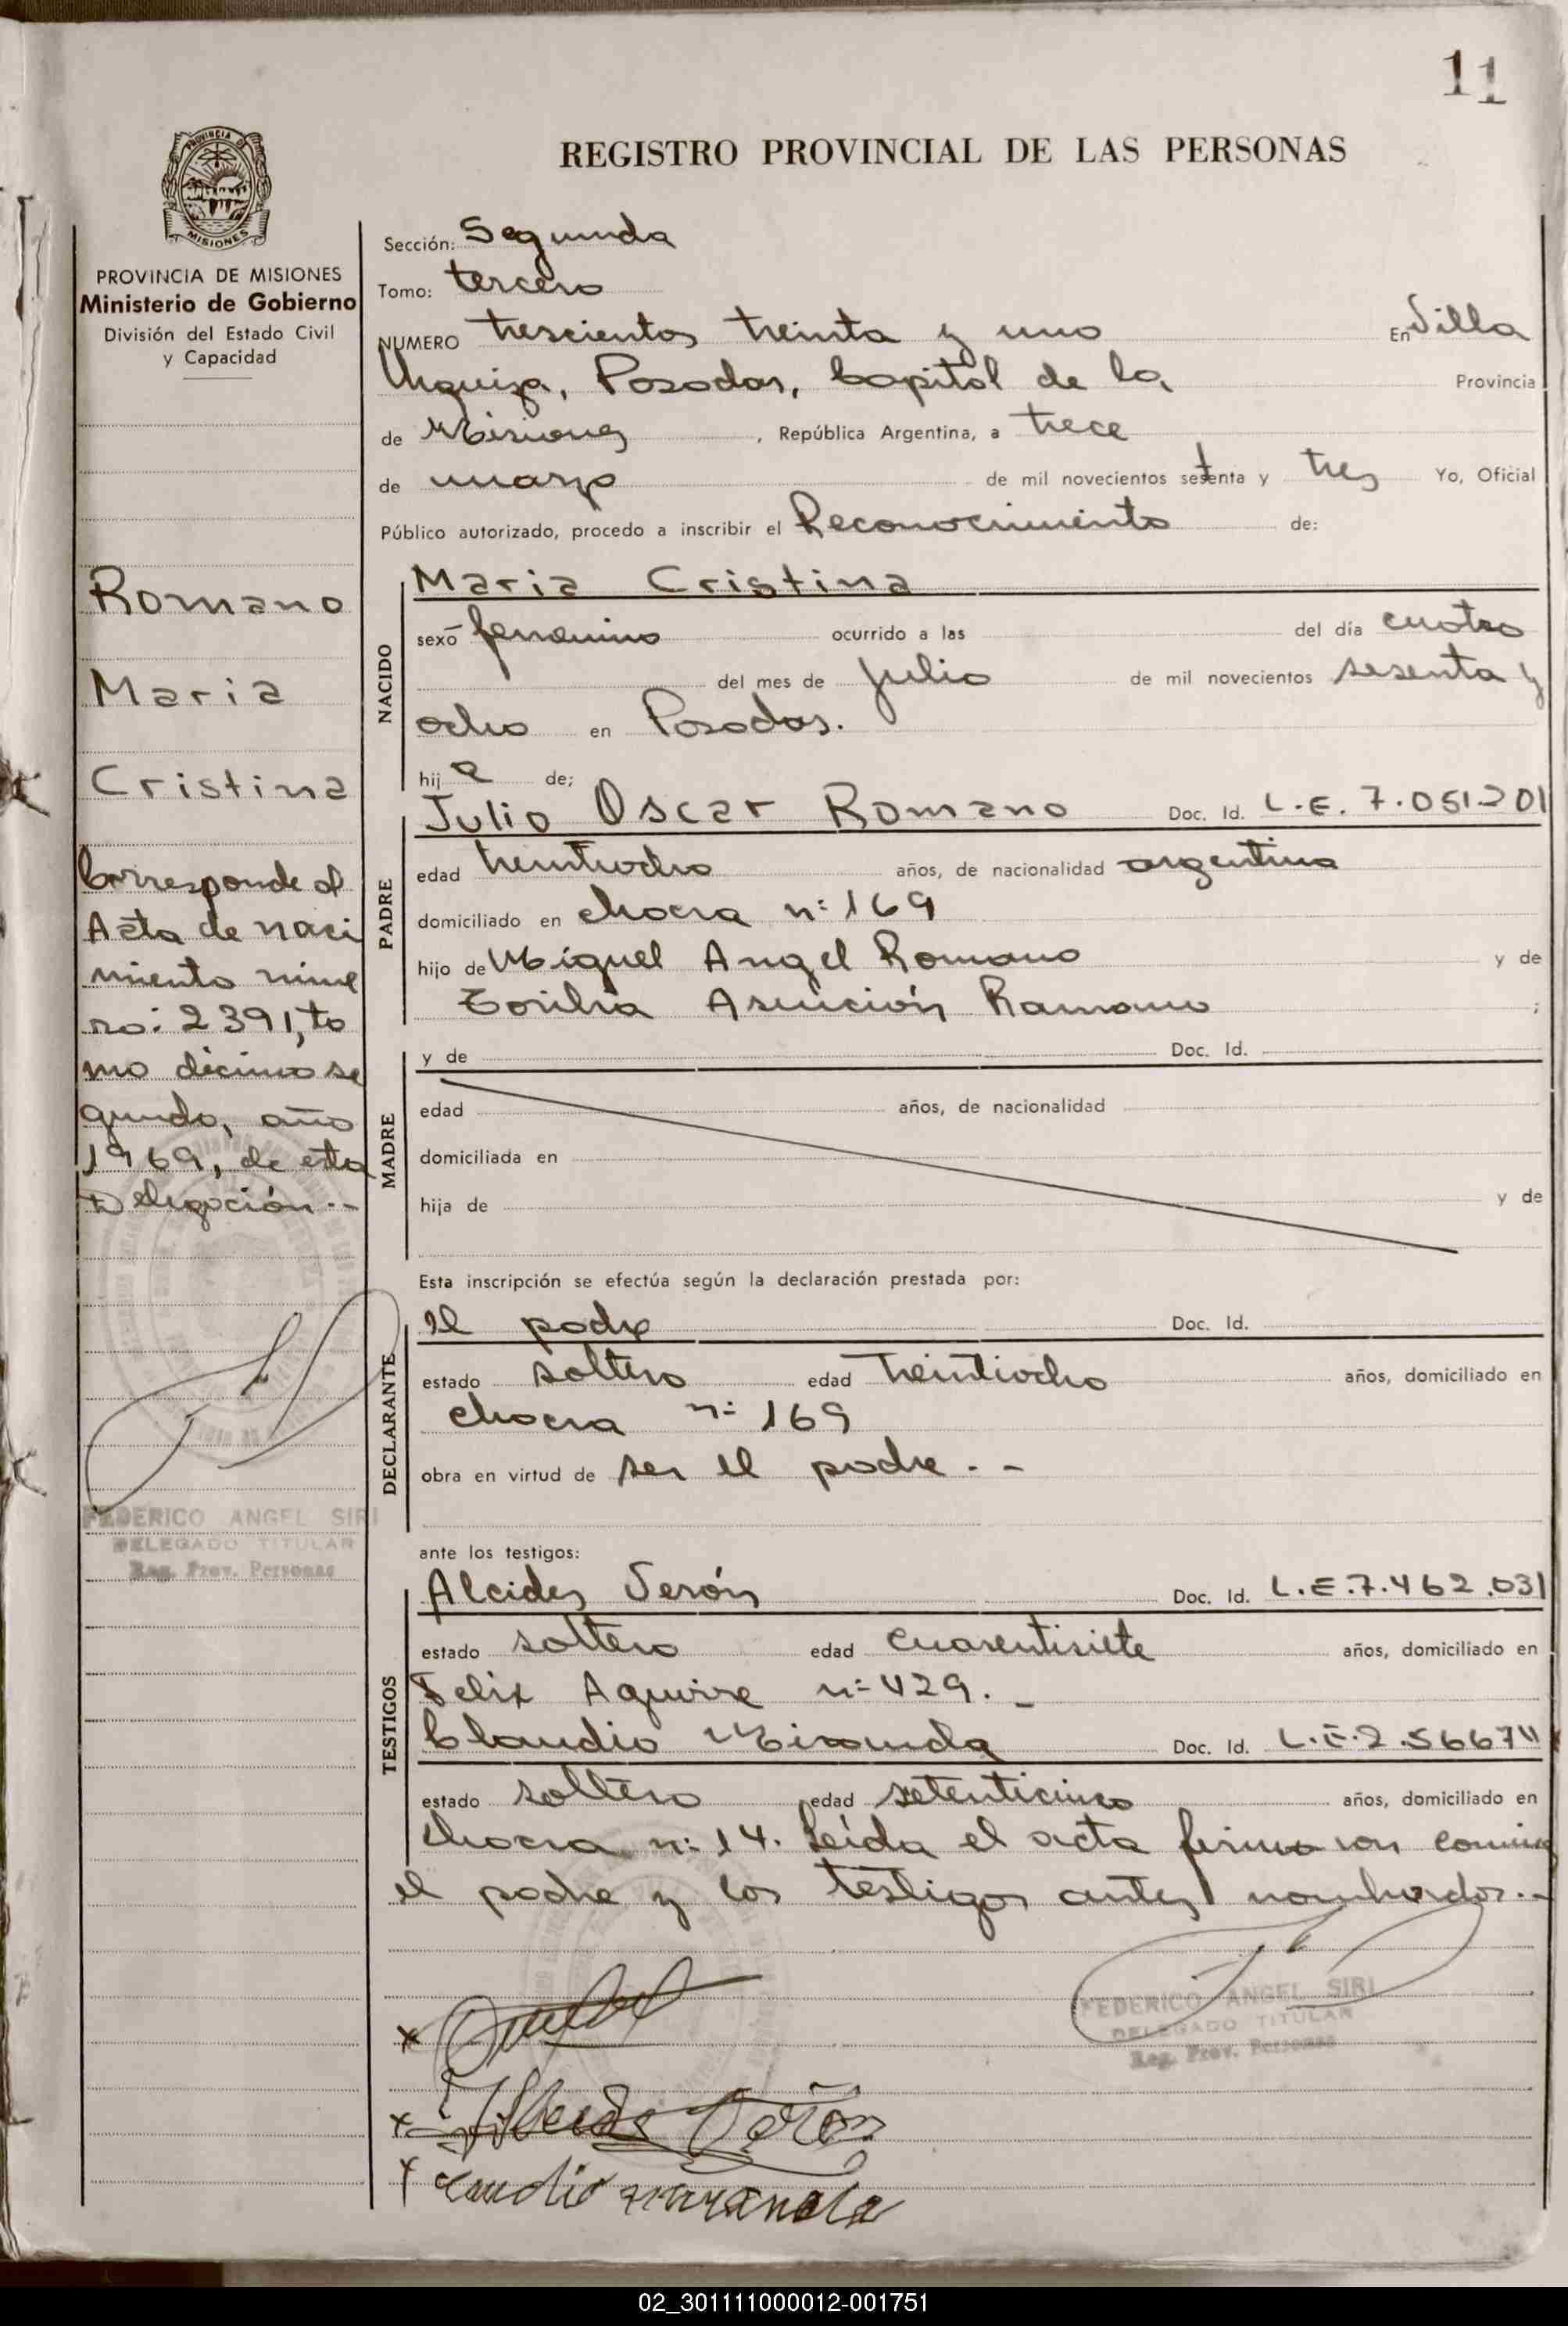 11
REGISTRO PROVINCIAL DE LAS PERSONAS
PROVINCIA DE MISIONES
Ministerio de Gobierno
División del Estado Civil
y Capacidad
Romano
Maria
Cristina
Corresponde al
Acta de naci
miento núme
ro: 2391, to
mo décimo se
gundo, año
1969, de esta
Delegación.-
FEDERICO ANGEL SIRI
DELEGADO TITULAR
Reg. Prov. Personas
Sección: Segunda
Tomo: tercero
NUMERO trescientos treinta y uno En Villa
Urquiza, Posadas, Capital de la Provincia
de Misiones, República Argentina, a trece
de marzo de mil novecientos setenta y tres Yo, Oficial
Público autorizado, procedo a inscribir el Reconocimiento de:
NACIDO
Maria Cristina
sexo femenino ocurrido a las del día cuatro
del mes de julio de mil novecientos sesenta y
ocho en Posadas.
hija de;
PADRE
Julio Oscar Romano Doc. Id. L.E. 7.051.201
edad treintiocho años, de nacionalidad argentina
domiciliado en chacra nº 169
hijo de Miguel Angel Romano y de
Asunción Ramano ;
MADRE
y de Doc. Id.
edad años, de nacionalidad
domiciliada en
hija de y de
Esta inscripción se efectúa según la declaración prestada por:
DECLARANTE
el padre Doc. Id.
estado soltero edad treintiocho años, domiciliado en
chacra nº 169
obra en virtud de ser el padre.-
ante los testigos:
TESTIGOS
Alcides Verón Doc. Id. L.E.7.462.031
estado soltero edad cuarentisiete años, domiciliado en
Felix Aguirre nº 429.-
Claudio Miranda Doc. Id. L.E.2.566
estado soltero edad setenticinco años, domiciliado en
chacra nº 14. Leída el acta firman con
el padre y los testigos antes nombrados.-
FEDERICO ANGEL SIRI
DELEGADO TITULAR
Reg. Prov. Personas
Alcides Verón
Claudio Miranda
02_301111000012-001751